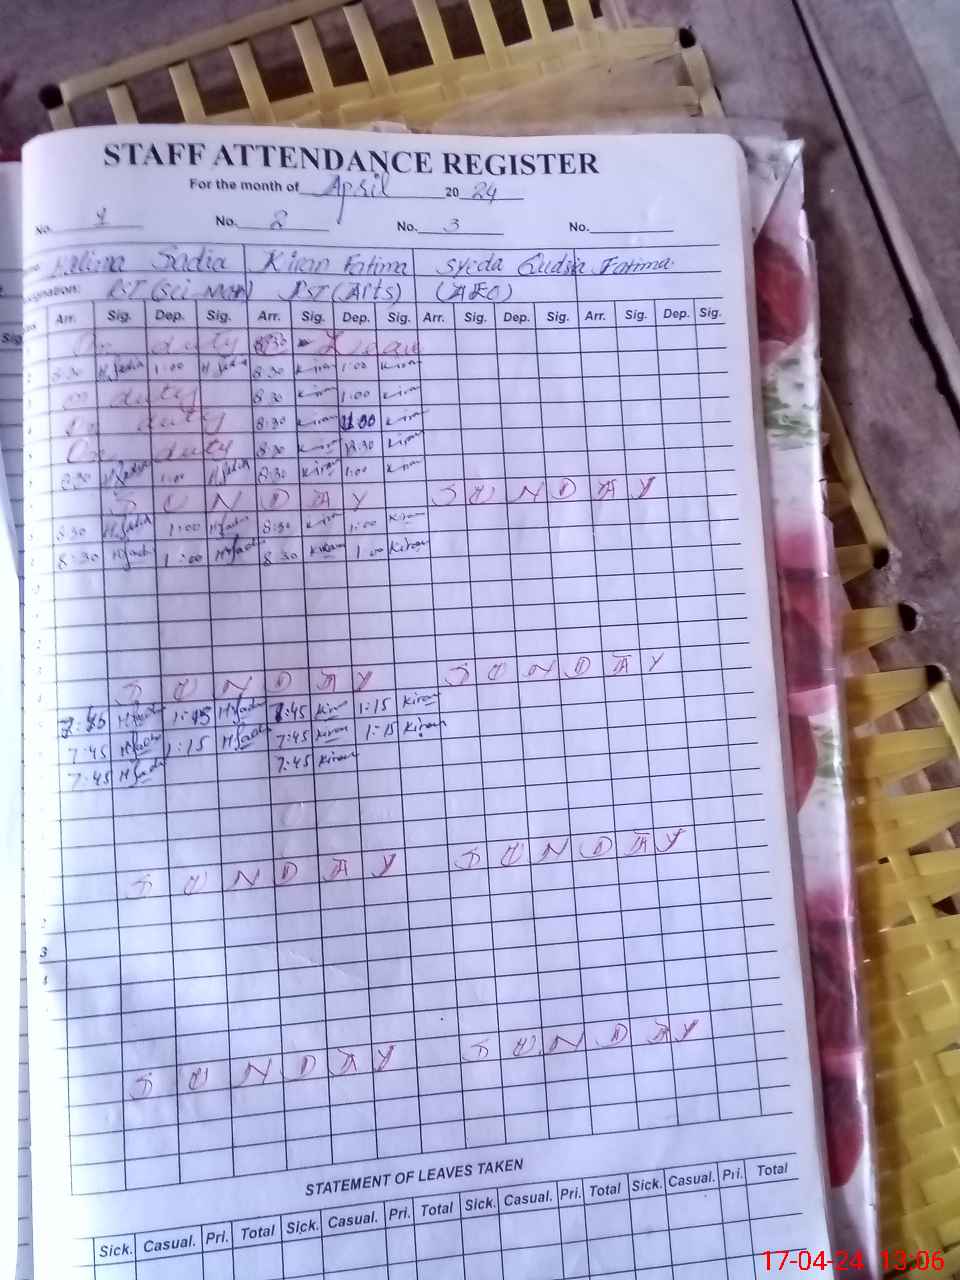 STAFF ATTENDANCE REGISTER
For the month of April 2024
No. 1 No. 2 No. 3 No.
Sadia Kiran Fatima Syeda Qudsia Fatima
PST (Arts) (AEO)
Arr. Sig. Dep. Sig. Arr. Sig. Dep. Sig. Arr. Sig. Dep. Sig. Arr. Sig. Dep. Sig.
On duty Leave
8:30 H.Sadia 1:00 H.Sadia 8:30 Kiran 1:00 Kiran
on duty 8:30 Kiran 1:00 Kiran
on duty 8:30 Kiran Kiran
On duty 8:30 Kiran Kiran
8:30 H.Sadia 1:00 H.Sadia 8:30 Kiran 1:00 Kiran
S U N D A Y S U N D A Y
8:30 H.Sadia 1:00 H.Sadia 8:30 Kiran 1:00 Kiran
8:30 H.Sadi 1:00 H.Sadi 8:30 Kiran 1:00 Kiran
S U N D A Y S U N D A Y
7:45 H.Sadi 1:15 H.Sadi 7:45 Kiran 1:15 Kiran
7:45 H.Sadi 1:15 H.Sadi 7:45 Kiran 1:15 Kiran
7:45 H.Sadi 7:45 Kiran
S U N D A Y S U N D A Y
2
3
4
S U N D A Y S U N D A Y
STATEMENT OF LEAVES TAKEN
Sick. Casual. Pri. Total Sick. Casual. Pri. Total Sick. Casual. Pri. Total Sick. Casual. Pri. Total
17-04-24 13:06